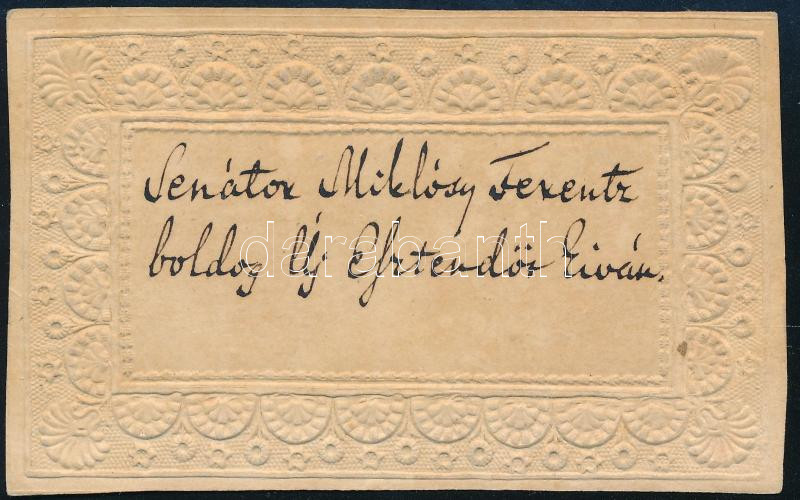 Senátor Miklósy Ferentz
boldog Új Esztendőt kíván.
darabanth.com